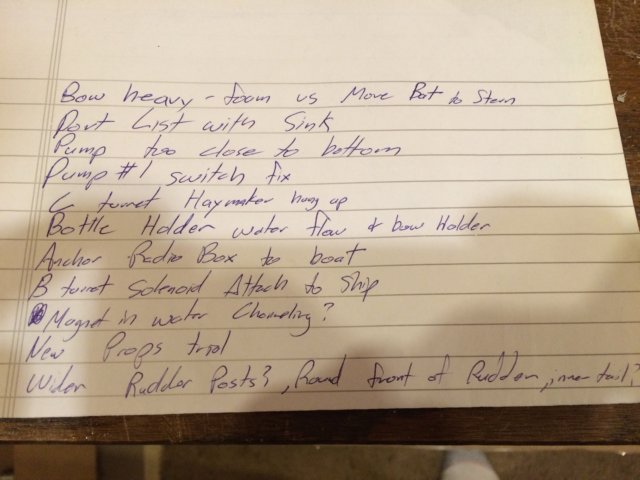 Bow heavy - foam vs Move Bat to Stern
Port List with Sink
Pump too close to bottom
Pump #1 switch fix
C turret Haymaker hung up
Bottle Holder water flow & bow Holder
Anchor Radio Box to boat
B turret Solenoid Attach to Ship
Magnet in water Channeling?
New Props trial
Wider Rudder Posts?, Round front of Rudder, inner tail?